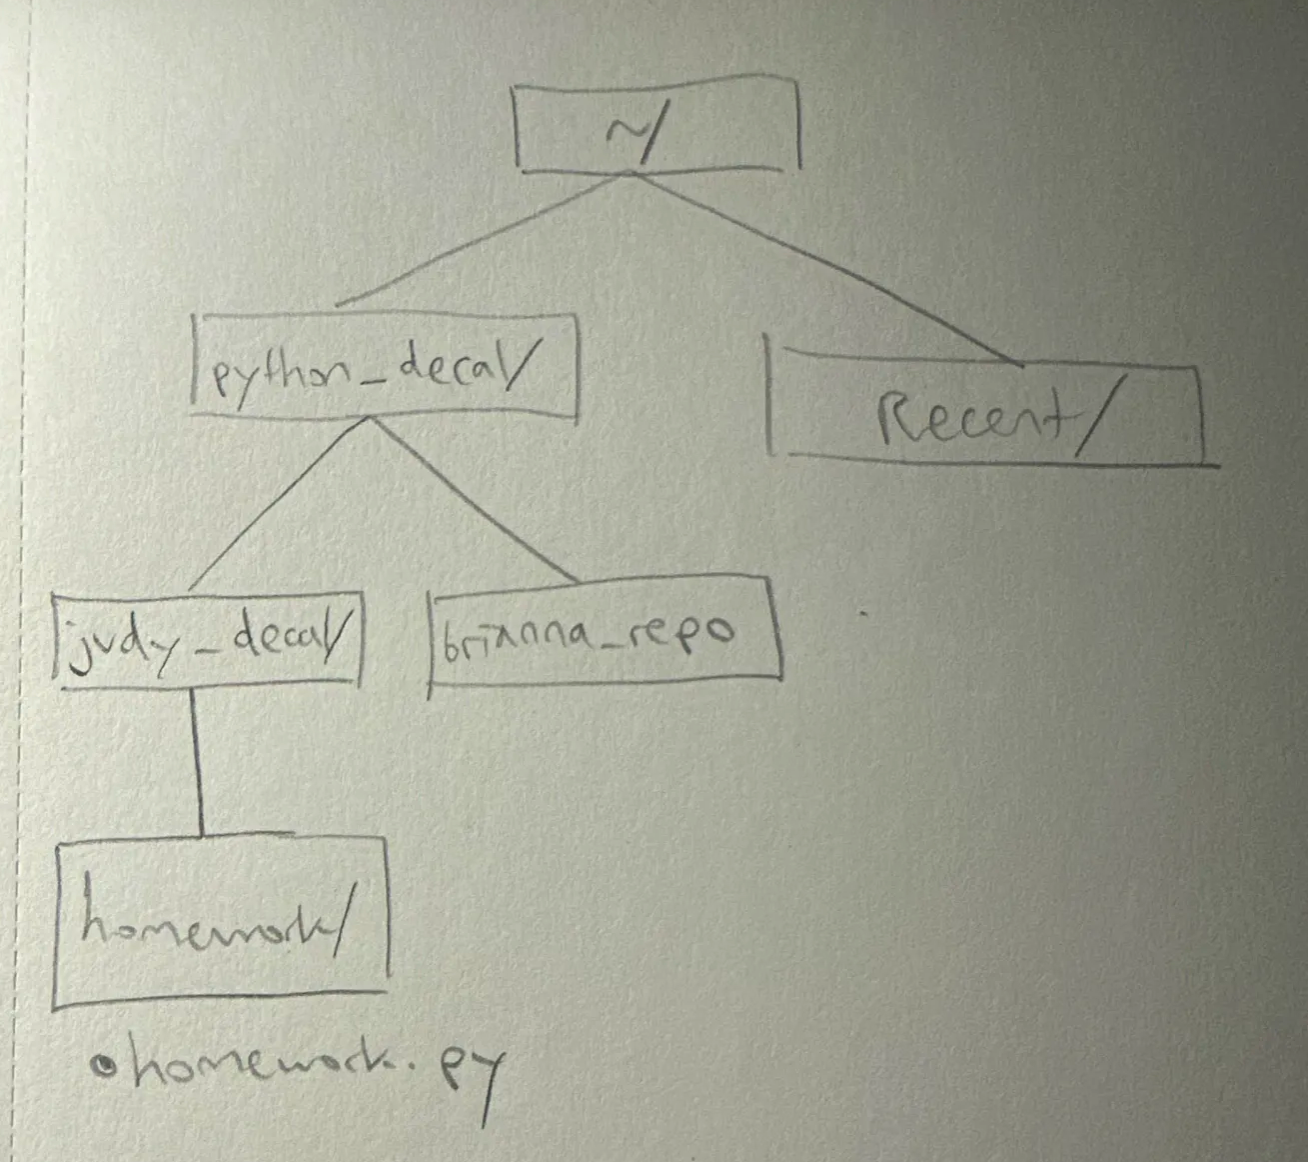 ~/
python_decal/
Recent/
judy_decal/
brianna_repo
homework/
homework.py